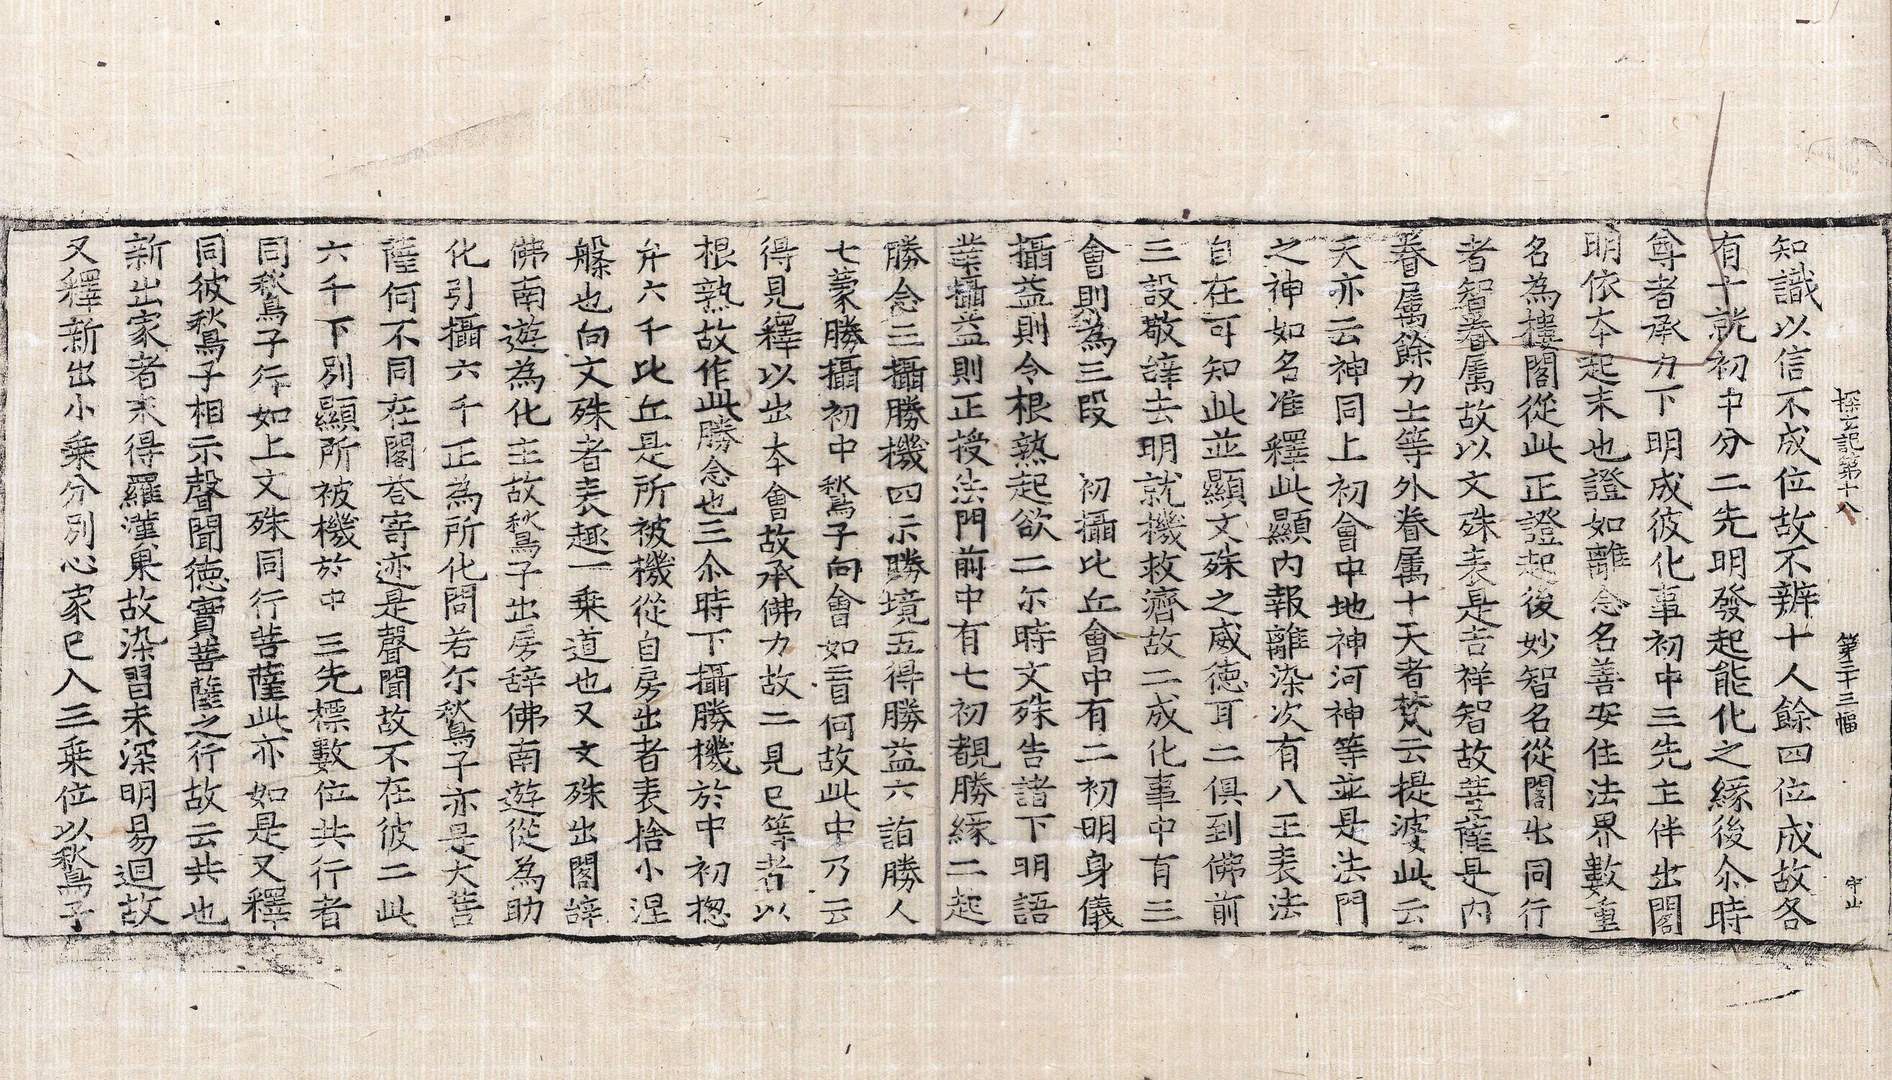 探玄記第十八　第三十三幅　守山
知識以信不成位故不辨十人餘四位成故各
有十就初中分二先明發起能化之緣後尒時
尊者承力下明成彼化事初中三先主伴出閣
明依本起末也證如離念名善安住法界數重
名為樓閣從此正證起後妙智名從閣出同行
者智眷属故以文殊表是吉祥智故菩薩是內
眷属餘力士等外眷属十天者梵云提婆此云
天亦云神同上初會中地神河神等並是法門
之神如名准釋此顯內報離染次有八王表法
自在可知此並顯文殊之威德耳二俱到佛前
三設敬辞去明就機救濟故二成化事中有三
會則為三段　初攝比丘會中有二初明身儀
攝益則令根熟起欲二尒時文殊告諸下明語
業攝益則正授法門前中有七初覩勝緣二起
勝念三攝勝機四示勝境五得勝益六詣勝人
七蒙勝攝初中鶖子向會如盲何故此中乃云
得見釋以出本會故承佛力故二見已等者以
根熟故作此勝念也三尒時下攝勝機於中初揔
弁六千比丘是所被機從自房出者表捨小涅
槃也向文殊者表趣一乘道也又文殊出閣辞
佛南遊為化主故鶖子出房辞佛南遊從為助
化引攝六千正為所化問若尒鶖子亦是大菩
薩何不同在閣荅寄迹是聲聞故不在彼二此
六千下別顯所被機於中三先標數位共行者
同鶖子行如上文殊同行菩薩此亦如是又釋
同彼鶖子相示聲聞德實菩薩之行故云共也
新出家者未得羅漢果故染習未深明易迴故
又釋新出小乘分別心家已入三乘位以鶖子